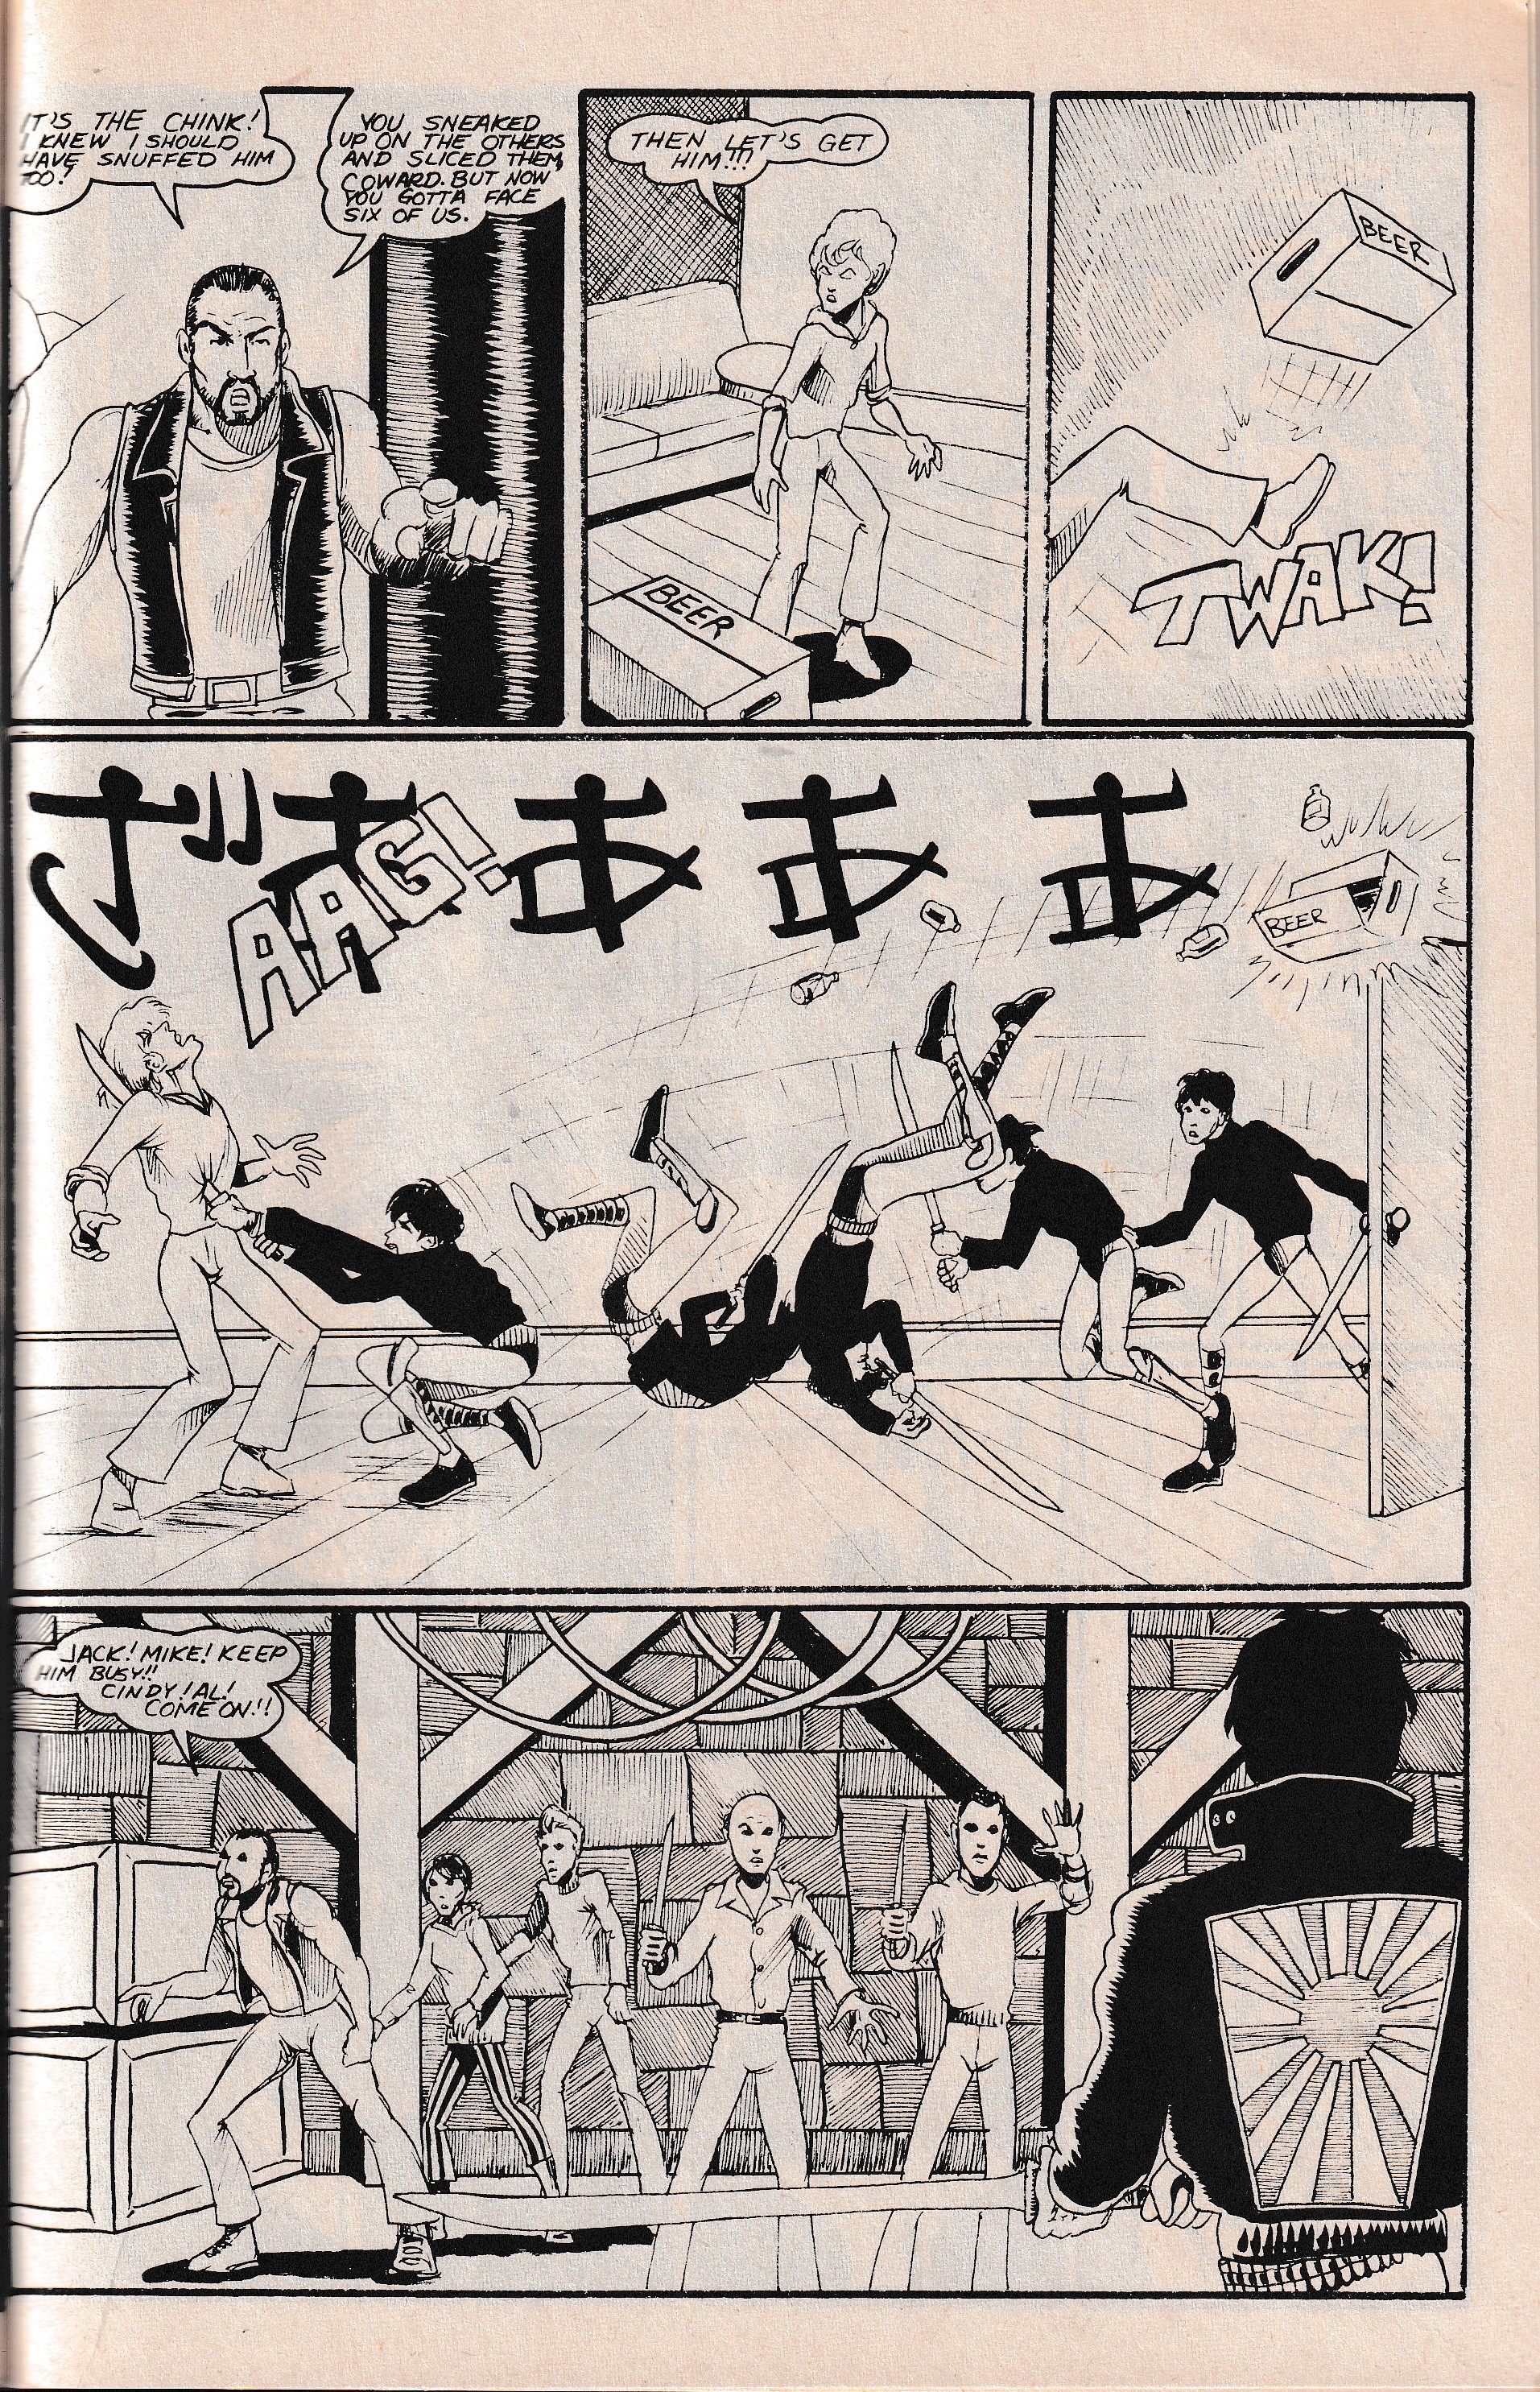 IT'S THE CHINK!
I KNEW I SHOULD
HAVE SNUFFED HIM
TOO!
YOU SNEAKED
UP ON THE OTHERS
AND SLICED THEM,
COWARD. BUT NOW
YOU GOTTA FACE
SIX OF US.
THEN LET'S GET
HIM!!!
BEER
BEER
TWAK!
ああああ
AAG!
BEER
JACK! MIKE! KEEP
HIM BUSY!!
CINDY! AL!
COME ON!!